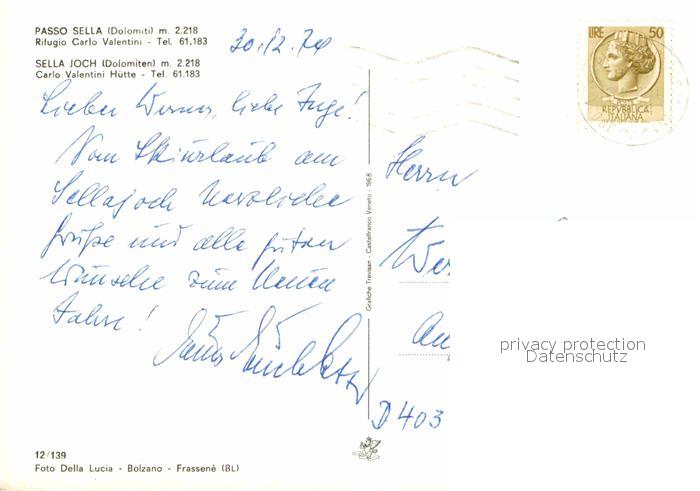 PASSO SELLA (Dolomiti) m. 2.218
Rifugio Carlo Valentini - Tel. 61.183
SELLA JOCH (Dolomiten) m. 2.218
Carlo Valentini Hütte - Tel. 61.183
30.12.70
Lieber Werner, liebe Inge!
Vom Skiurlaub am
Sellajoch herzliche
Grüße und alle guten
Wünsche zum Neuen
Jahre!
12/139
Foto Della Lucia - Bolzano - Frassenè (BL)
Grafiche Trevisan - Castelfranco Veneto - 1968
LIRE 50
REPVBBLICA
ITALIANA
Herrn
Wer
An
D 403
privacy protection
Datenschutz